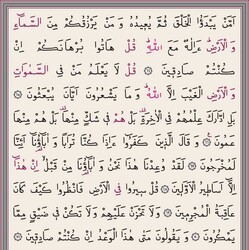 أَمَّنْ يَبْدَؤُا الْخَلْقَ ثُمَّ يُعِيدُهُ وَمَنْ يَرْزُقُكُمْ مِنَ السَّمَاءِ
وَالْأَرْضِ ءَإِلَٰهٌ مَعَ اللَّهِ قُلْ هَاتُوا بُرْهَانَكُمْ إِنْ
كُنْتُمْ صَادِقِينَ ۝ قُلْ لَا يَعْلَمُ مَنْ فِي السَّمَٰوَاتِ
وَالْأَرْضِ الْغَيْبَ إِلَّا اللَّهُ وَمَا يَشْعُرُونَ أَيَّانَ يُبْعَثُونَ ۝
بَلِ ادَّارَكَ عِلْمُهُمْ فِي الْآخِرَةِ بَلْ هُمْ فِي شَكٍّ مِنْهَا بَلْ هُمْ مِنْهَا
عَمُونَ ۝ وَقَالَ الَّذِينَ كَفَرُوا ءَإِذَا كُنَّا تُرَابًا وَآبَاؤُنَا أَئِنَّا
لَمُخْرَجُونَ ۝ لَقَدْ وُعِدْنَا هَٰذَا نَحْنُ وَآبَاؤُنَا مِنْ قَبْلُ إِنْ هَٰذَا
إِلَّا أَسَاطِيرُ الْأَوَّلِينَ ۝ قُلْ سِيرُوا فِي الْأَرْضِ فَانْظُرُوا كَيْفَ كَانَ
عَاقِبَةُ الْمُجْرِمِينَ ۝ وَلَا تَحْزَنْ عَلَيْهِمْ وَلَا تَكُنْ فِي ضَيْقٍ مِمَّا
يَمْكُرُونَ ۝ وَيَقُولُونَ مَتَىٰ هَٰذَا الْوَعْدُ إِنْ كُنْتُمْ صَادِقِينَ ۝